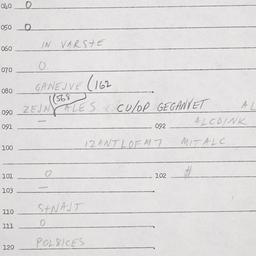 040 0
050 0
060 IN VARSTE
070 0
080 GANEJVE (162
(568
090 ZEJN ALES CU/OP GEGANVET AL
091 — 092 ALCDINK
100 IZANTLOFMT MITALC
101 0 102 #
103 —
110 S+NAJT
111 0
120 POLBICES